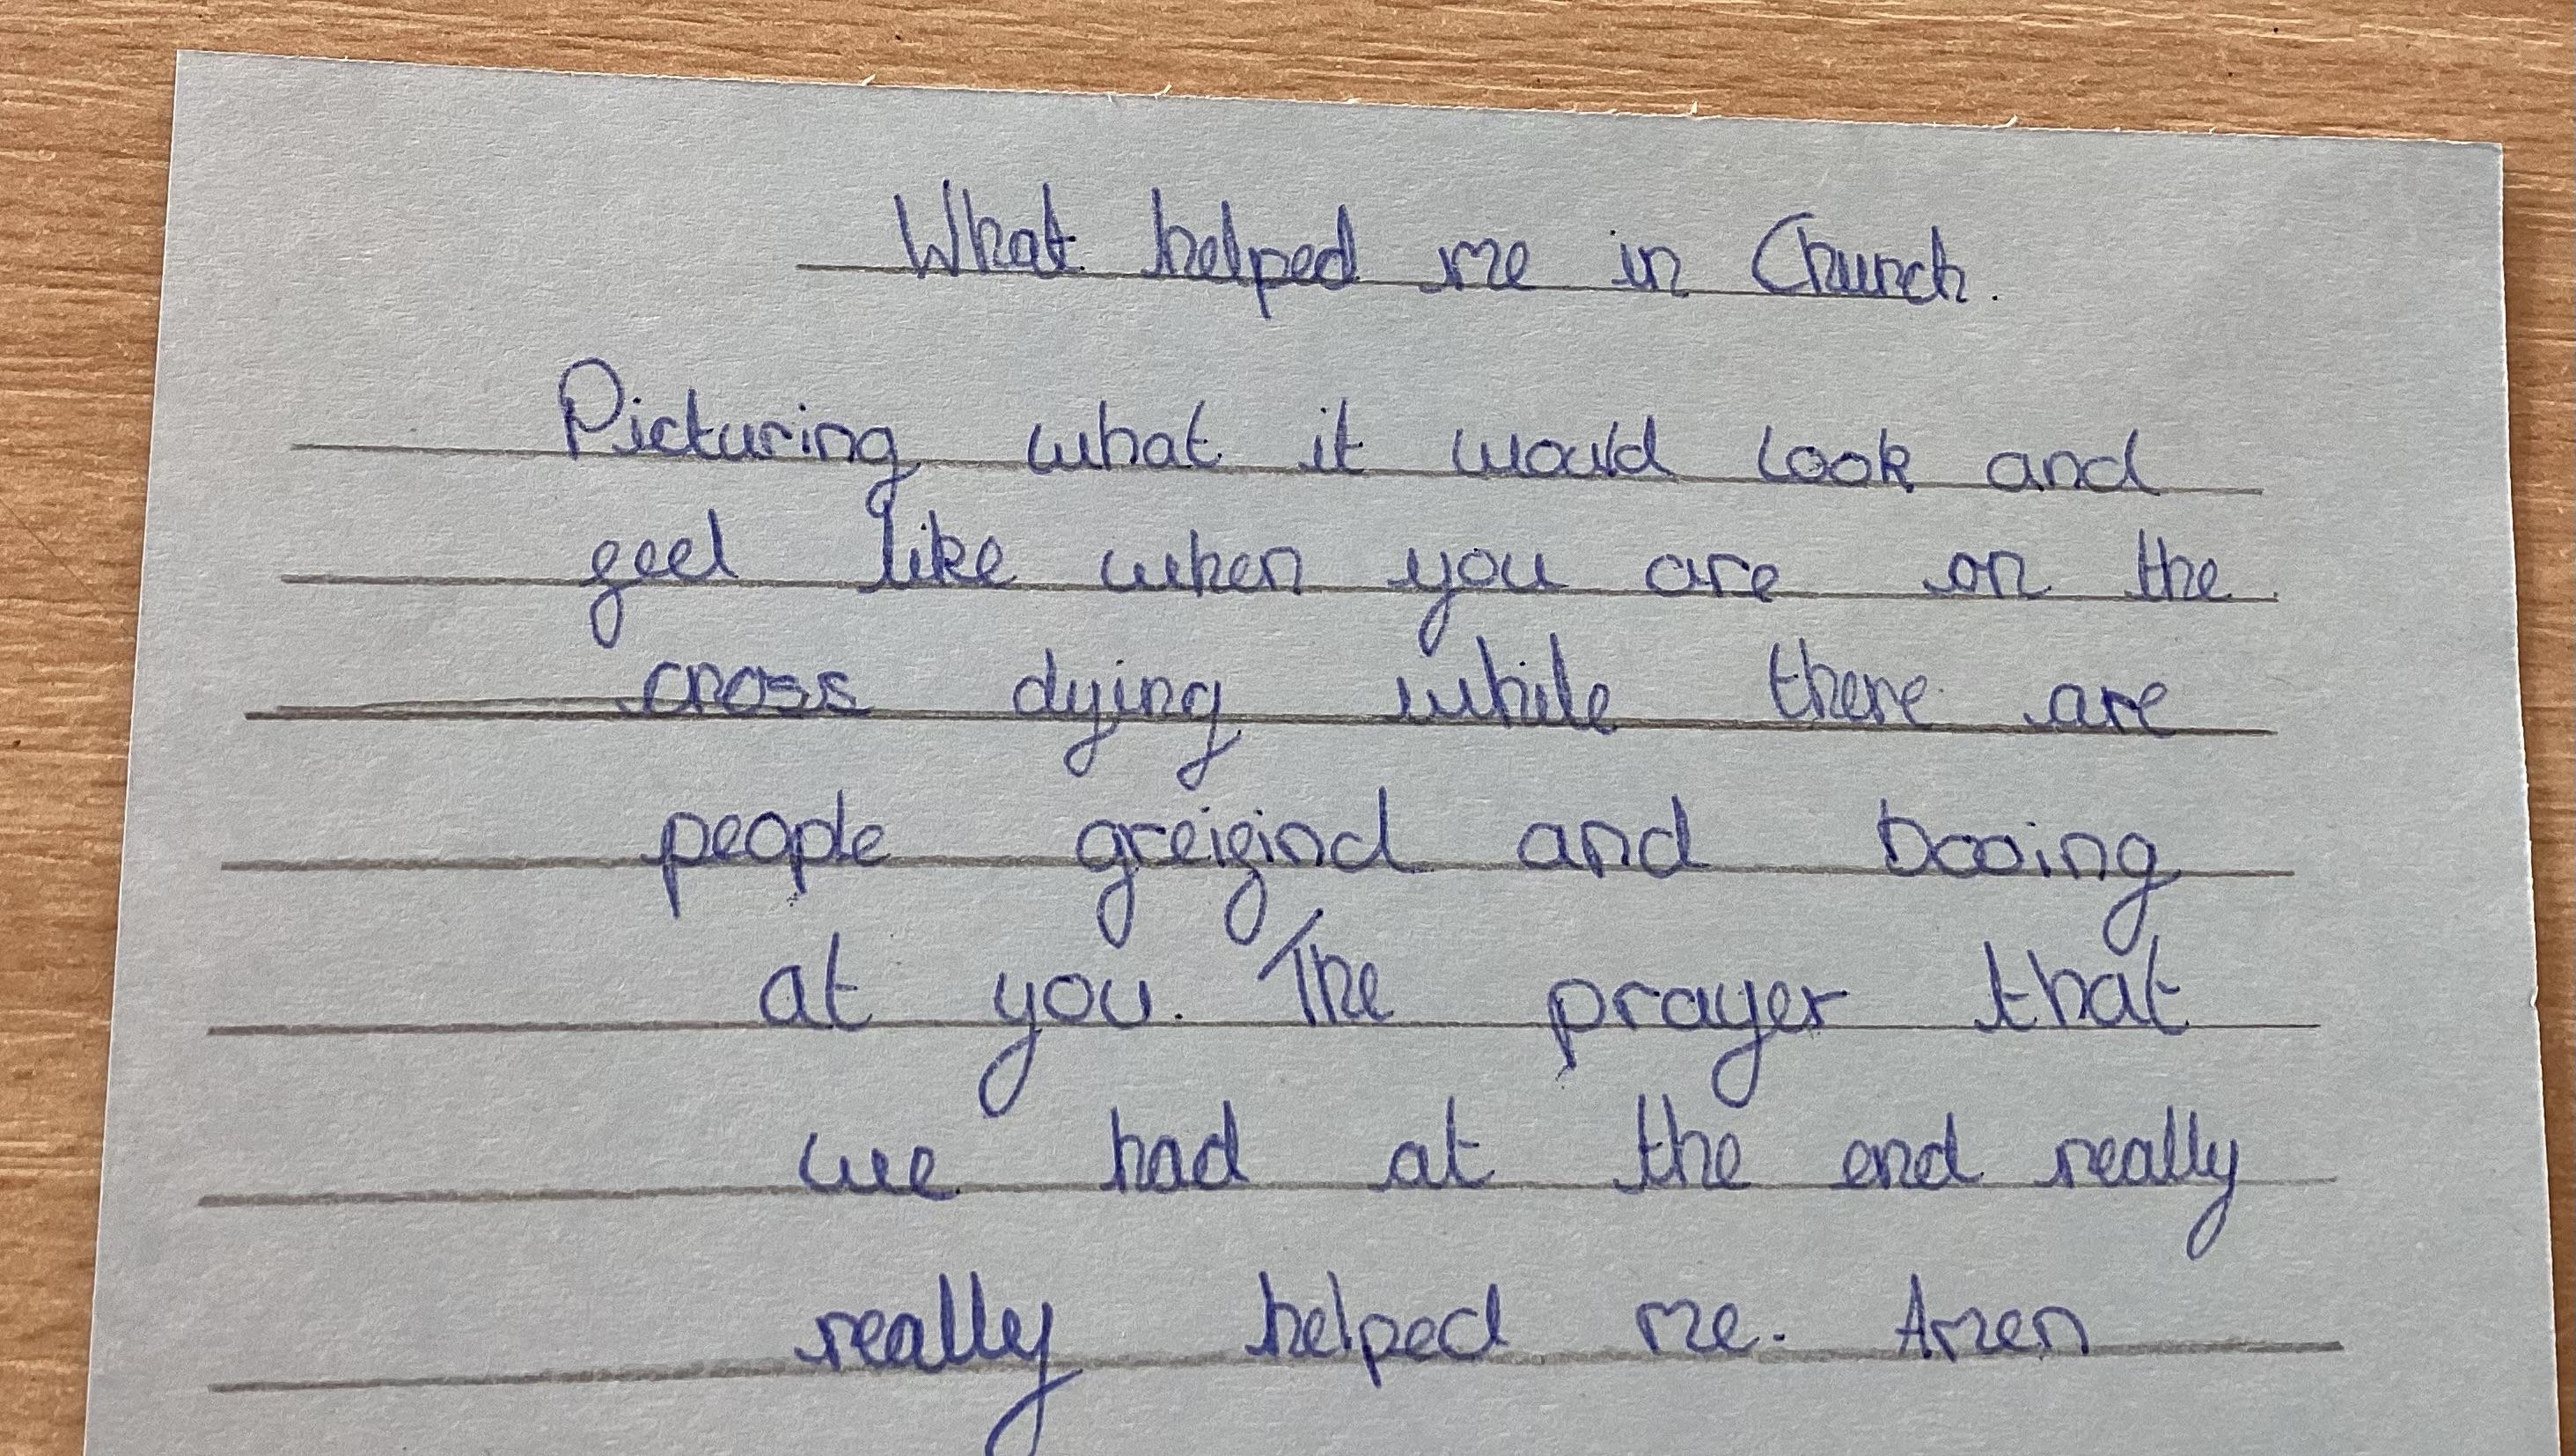 What helped me in Church.
Picturing what it would look and
feel like when you are on the
cross dying while there are
people greifind and booing
at you. The prayer that
we had at the end really
really helped me. Amen